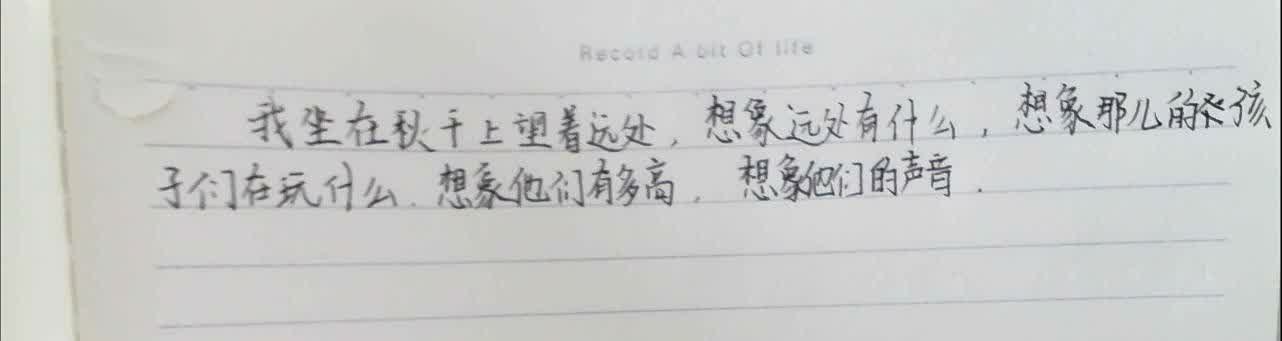 Record A bit Of life
我坐在秋千上望着远处，想象远处有什么，想象那儿的孩
子们在玩什么．想象他们有多高，想象他们的声音．